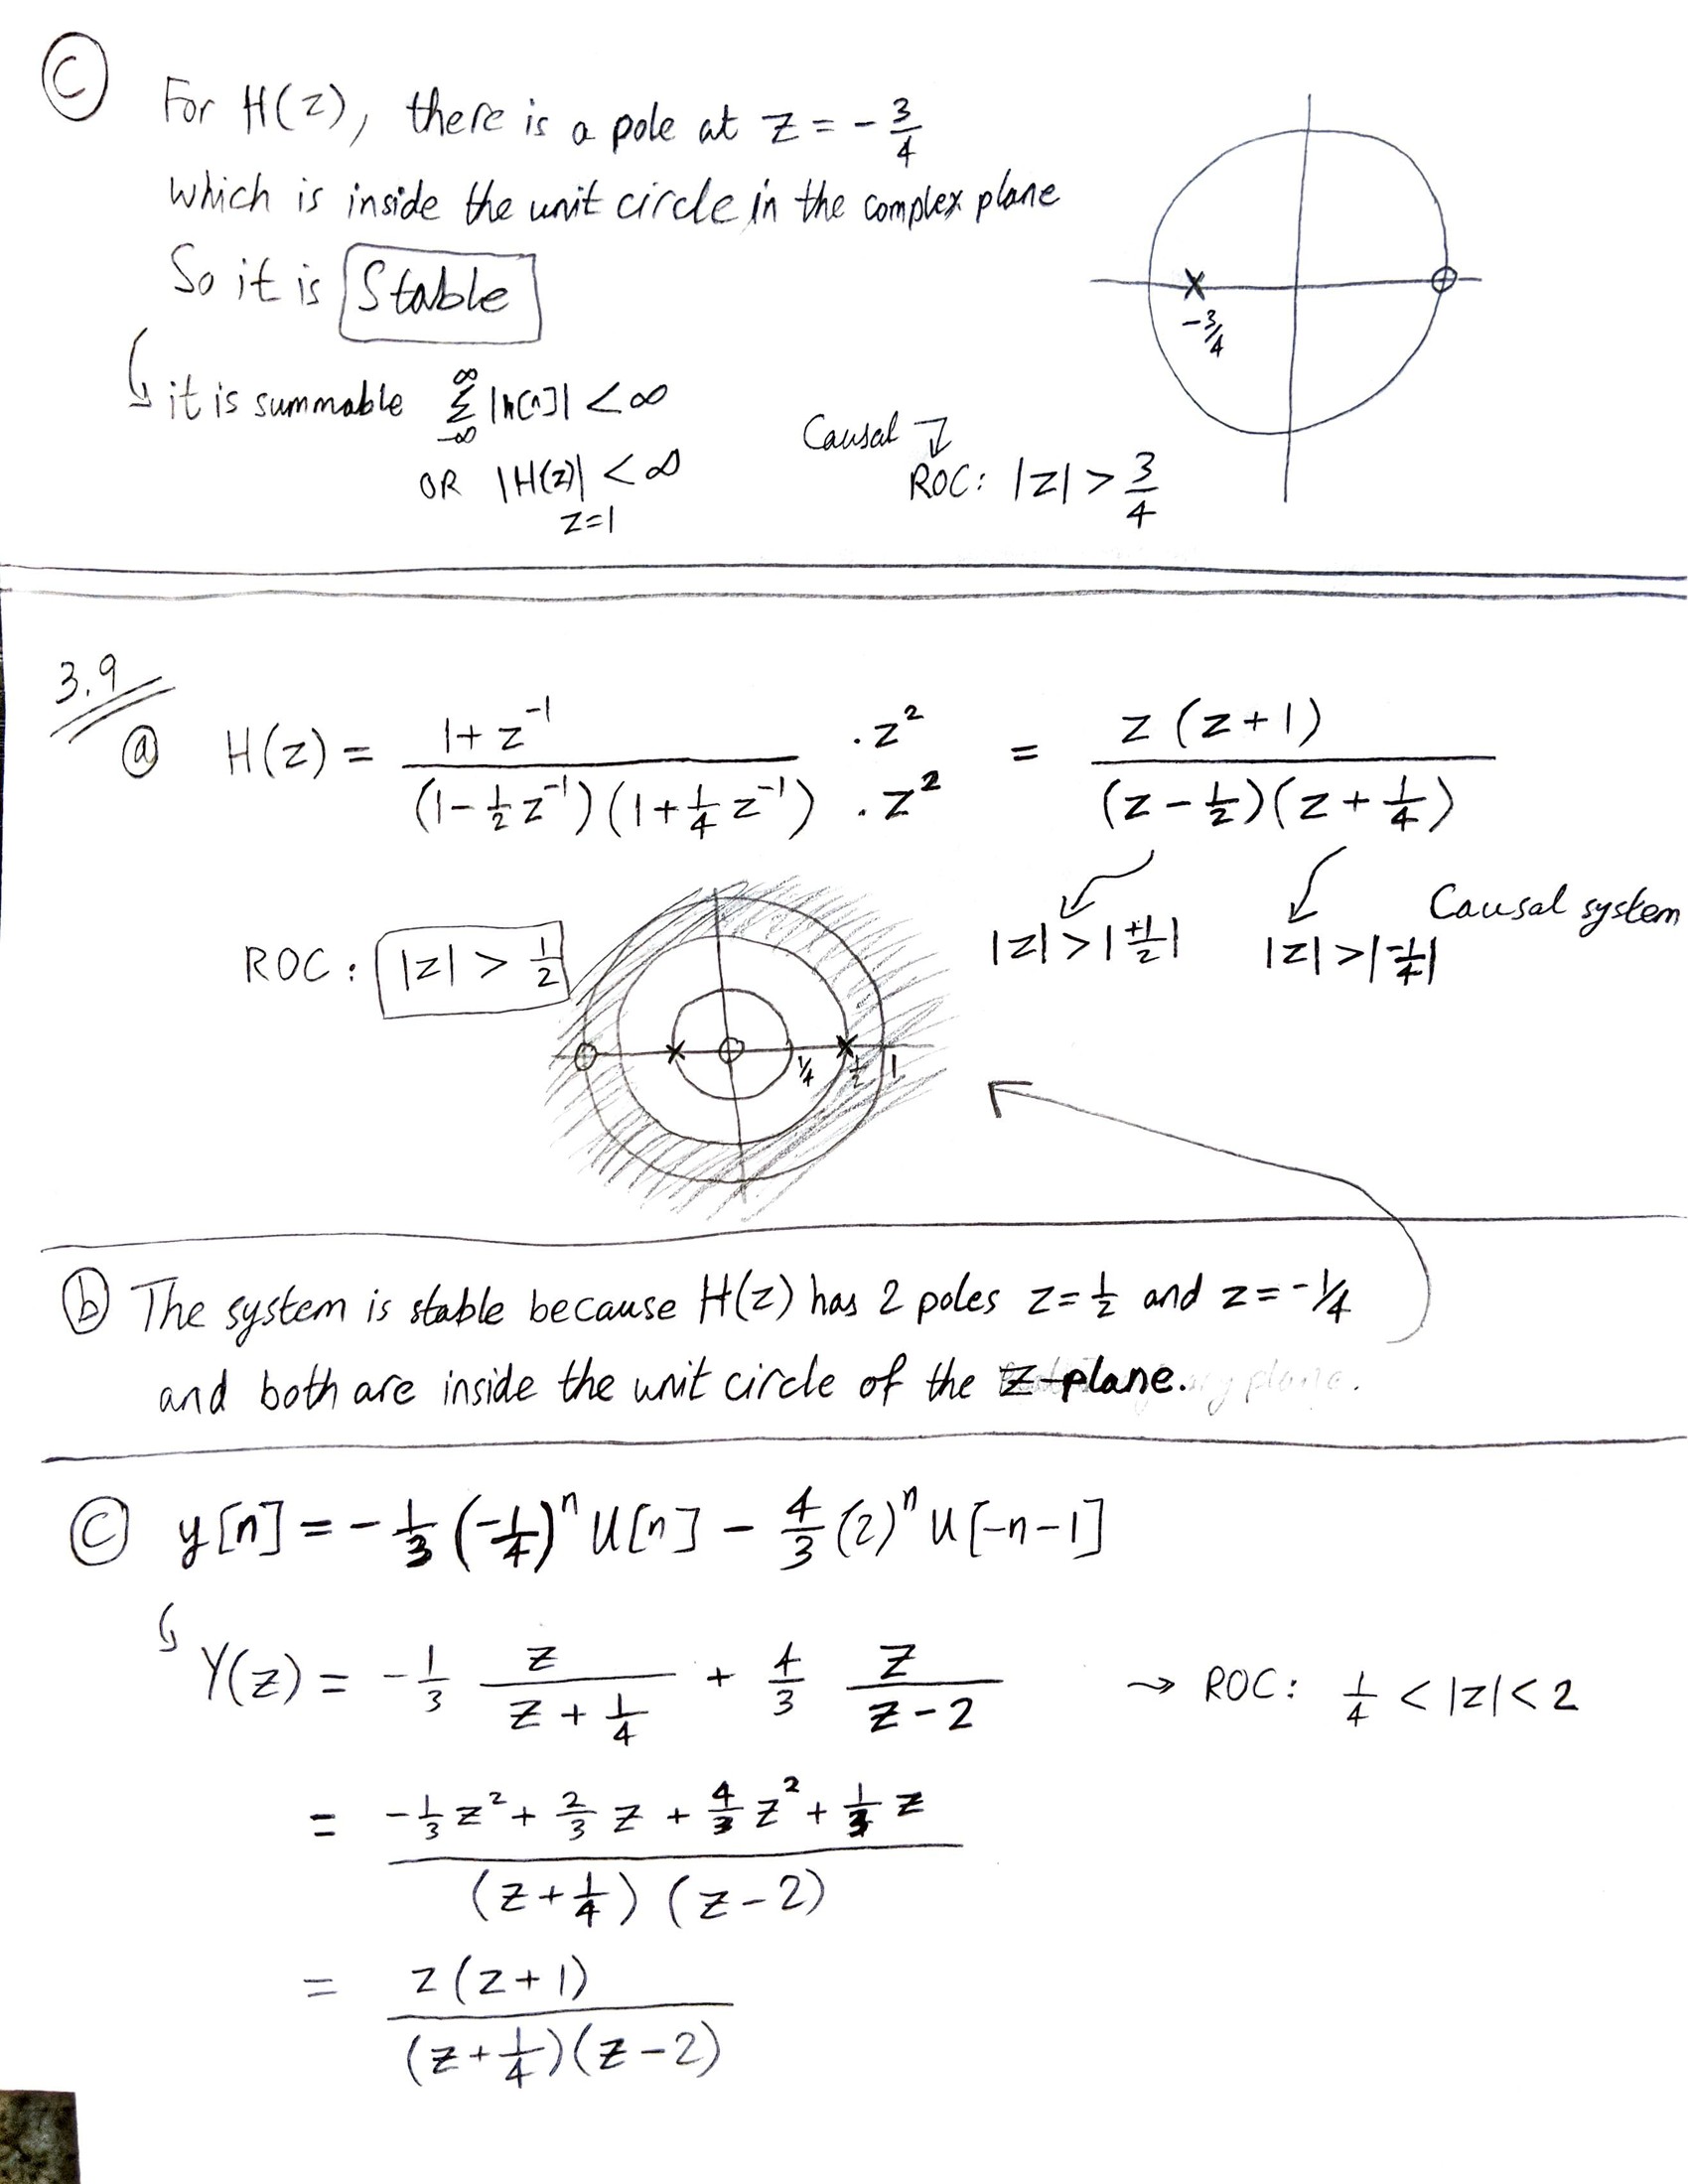 C
For H(z), there is a pole at z = -3/4
which is inside the unit circle in the complex plane
So it is Stable
it is summable ∞ Σ -∞ |h[n]| < ∞
OR |H(z)| < ∞
z=1
Causal
ROC: |z| > 3/4
-3/4
3.9
a H(z) = (1+z^-1) / ((1-1/2 z^-1)(1+1/4 z^-1)) · z^2 / · z^2 = z(z+1) / ((z-1/2)(z+1/4))
|z|>|+1/2| |z|>|-1/4| Causal system
ROC: |z| > 1/2
1/4 1/2 1
b The system is stable because H(z) has 2 poles z=1/2 and z=-1/4
and both are inside the unit circle of the z-plane.
C y[n] = -1/3 (-1/4)^n U[n] - 4/3 (2)^n U[-n-1]
Y(z) = -1/3 z/(z+1/4) + 4/3 z/(z-2) → ROC: 1/4 < |z| < 2
= (-1/3 z^2 + 2/3 z + 4/3 z^2 + 1/3 z) / ((z+1/4)(z-2))
= z(z+1) / ((z+1/4)(z-2))